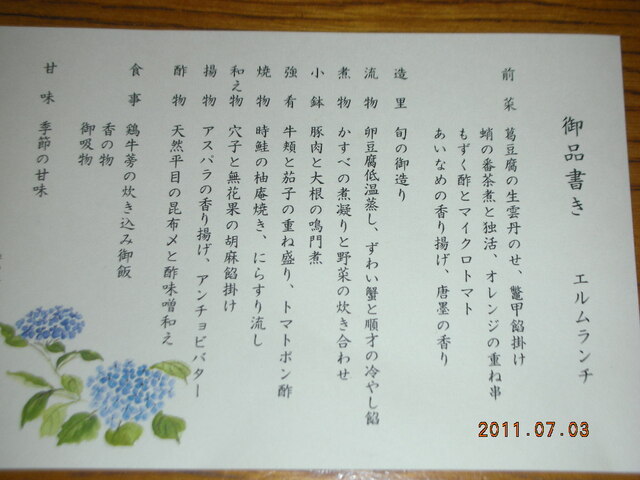 御品書き エルムランチ
前菜 葛豆腐の生雲丹のせ、鼈甲餡掛け
蛸の番茶煮と独活、オレンジの重ね串
もずく酢とマイクロトマト
あいなめの香り揚げ、唐墨の香り
造里 旬の御造り
流物 卵豆腐低温蒸し、ずわい蟹と順才の冷やし餡
煮物 かすべの煮凝りと野菜の炊き合わせ
小鉢 豚肉と大根の鳴門煮
強肴 牛頬と茄子の重ね盛り、トマトポン酢
焼物 時鮭の柚庵焼き、にらすり流し
和え物 穴子と無花果の胡麻餡掛け
揚物 アスパラの香り揚げ、アンチョビバター
酢物 天然平目の昆布〆と酢味噌和え
食事 鶏牛蒡の炊き込み御飯
香の物
御吸物
甘味 季節の甘味
2011.07.03